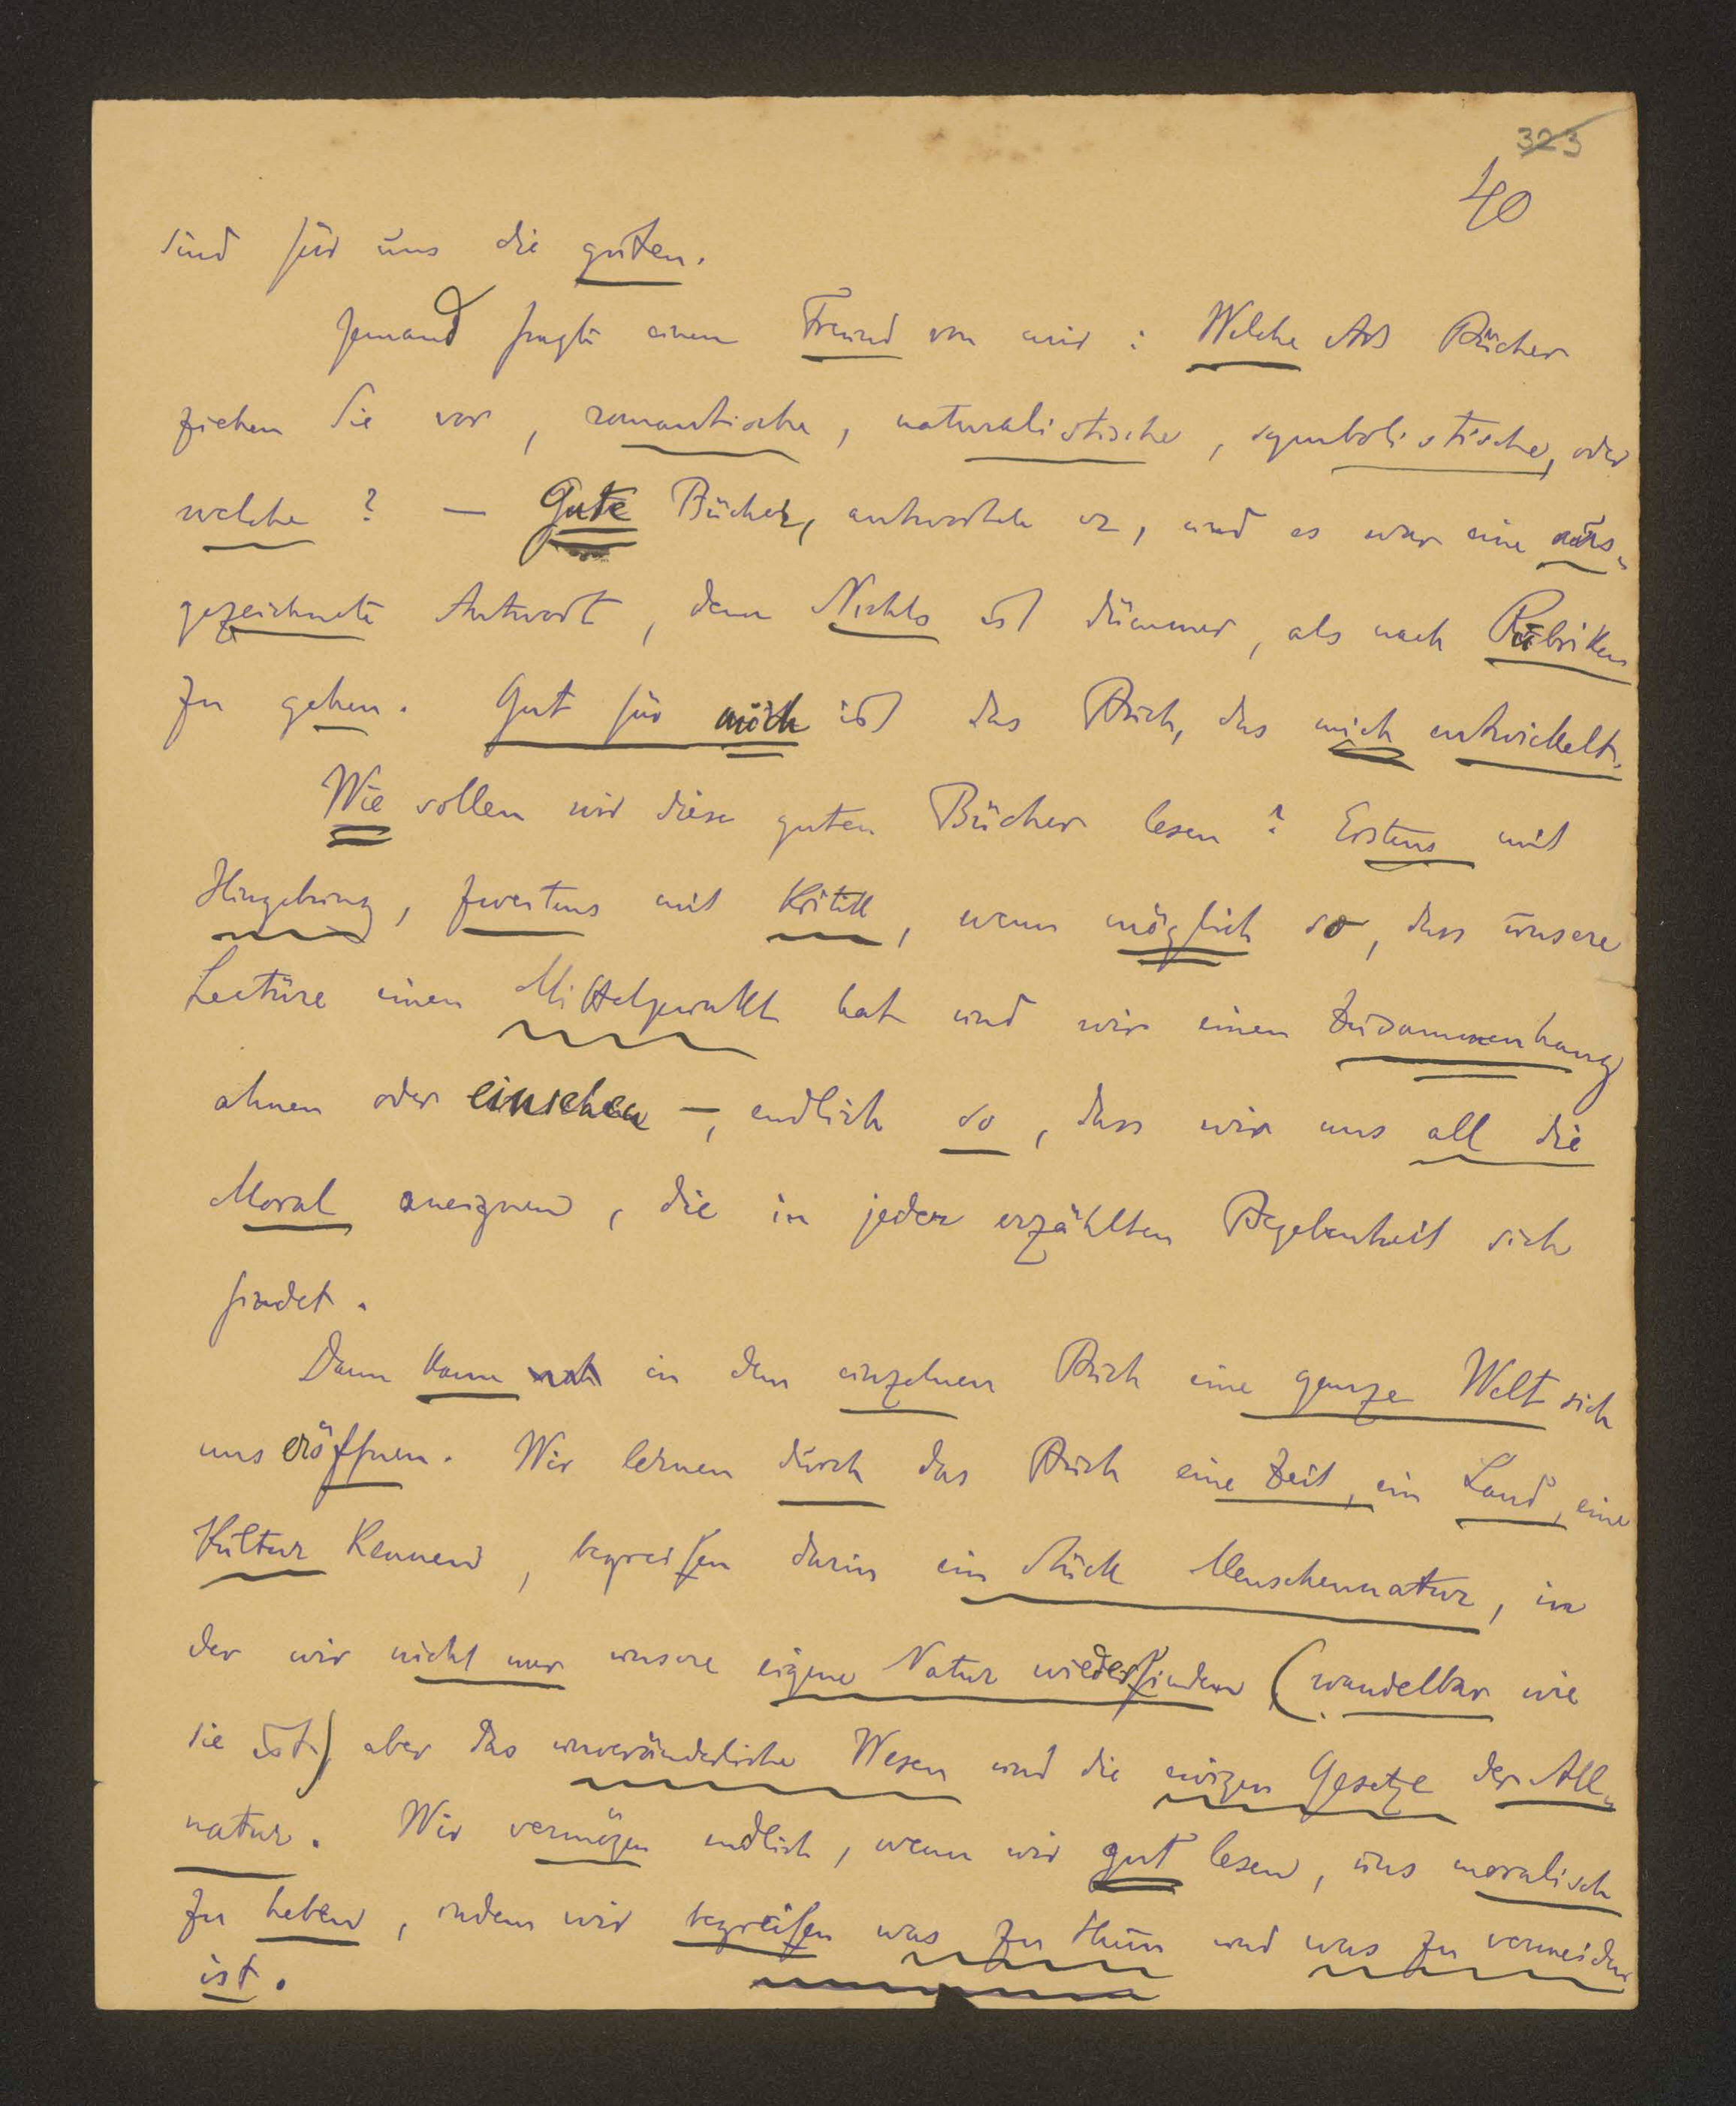 323
40
sind für uns die guten.
Jemand fragte einen Freund von mir: Welche Art Bücher
ziehen Sie vor, romantische, naturalistische, symbolistische, oder
welche? — Gute Bücher, antwortete er, und es war eine aus-
gezeichnete Antwort, denn Nichts ist dümmer, als nach Rubriken
zu gehen. Gut für mich ist das Buch, das mich entwickelt.
Wie sollen wir diese guten Bücher lesen? Erstens mit
Hingebung, zweitens mit Kritik, wenn möglich so, dass unsere
Lectüre einen Mittelpunkt hat und wir einen Zusammenhang
ahnen oder einsehen —, endlich so, dass wir uns all die
Moral aneignen, die in jeder erzählten Begebenheit sich
findet.
Dann kann in dem einzelnen Buch eine ganze Welt sich
uns eröffnen. Wir lernen durch das Buch eine Zeit, ein Land, eine
Kultur kennen, begreifen darin ein Stück Menschennatur, in
der wir nicht nur unsere eigene Natur wiederfinden (wandelbar wie
sie ist) aber das unveränderliche Wesen und die ewigen Gesetze der All-
natur. Wir vermögen endlich, wenn wir gut lesen, uns moralisch
zu heben, indem wir begreifen was zu thun und was zu vermeiden
ist.